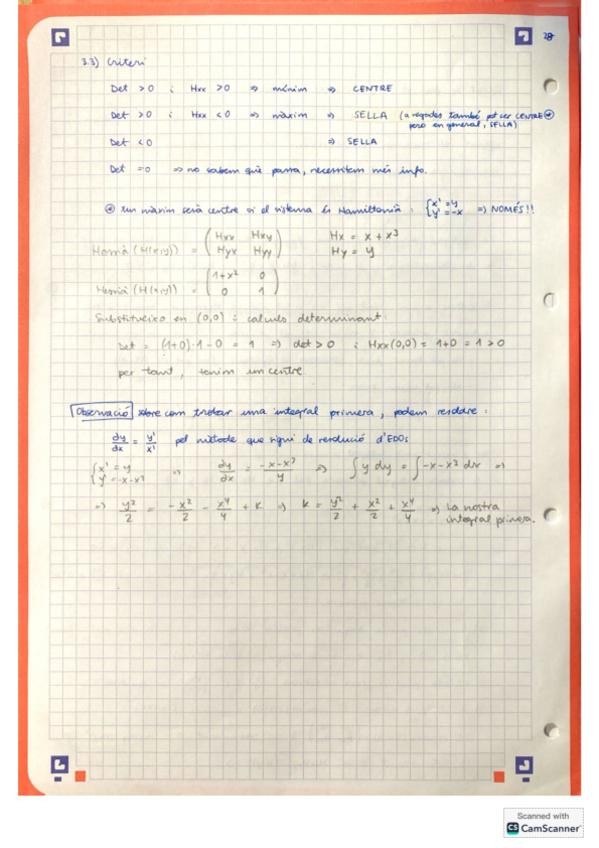 28
3.3) Criteri
Det > 0 i Hxx > 0 ⇒ mínim ⇒ CENTRE
Det > 0 i Hxx < 0 ⇒ màxim ⇒ SELLA (a vegades també pot ser CENTRE⊛
però en general, SELLA)
Det < 0 ⇒ SELLA
Det = 0 ⇒ no sabem què passa, necessitem més info.
⊛ Un màxim serà centre si el sistema és Hamiltonià: {x' = y ⇒ NOMÉS!!
y' = -x
(H(x,y)) = (Hxx Hxy Hx = x + x³
Hyx Hyy) Hy = y
Hessià (H(x,y)) = (1+x² 0
0 1)
Substitueixo en (0,0) i calculo determinant:
Det = (1+0)·1 - 0 = 1 ⇒ det > 0 i Hxx(0,0) = 1+0 = 1 > 0
per tant, tenim un centre
Observació sobre com trobar una integral primera, podem resoldre:
dy/dx = y'/x' pel mètode que sigui de resolució d'EDOs
{x' = y ⇒ dy/dx = -x-x³/y ⇒ ∫ y dy = ∫ -x-x³ dx ⇒
y' = -x-x³
⇒ y²/2 = -x²/2 - x⁴/4 + k ⇒ k = y²/2 + x²/2 + x⁴/4 ⇒ La nostra
integral primera.
Scanned with
CS CamScanner